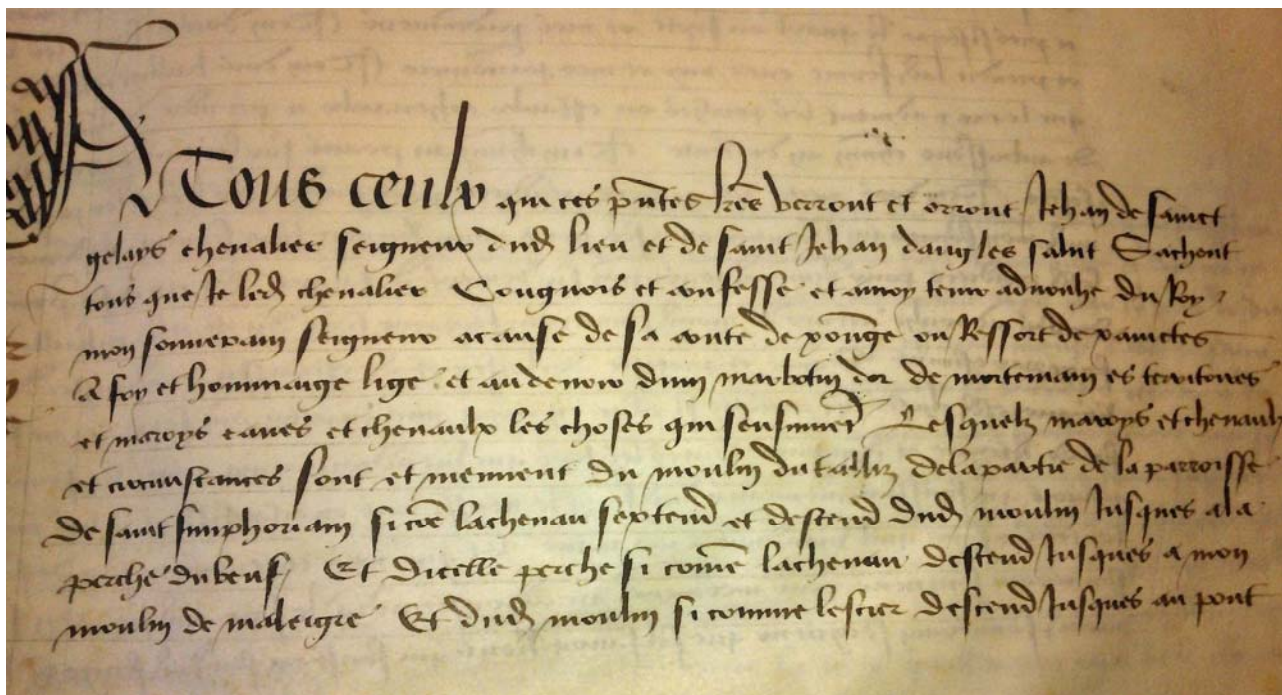 A Tous ceulx qui ces pntes lres verront et orront Jehan de sainct
gelays chevalier seigneur dud lieu et de saint Jehan dangles salut Sachent
tous que Je led chevalier Congnois et confesse et advouhe du Roy
mon souverain seigneur a cause de sa conte de xonge ou Ressort de xainctes
A foy et hommaige lige et au devoir dun marbotin dor de mortemain es territoires
et maroys eaues et chenaulx les choses qui sensuivet Lesquelz maroys et chenaulx
et circunstances sont et meuvent du moulin du de la partie de la parroisse
de saint simphoriam si coe lachenau sextend et descend dud moulin Jusques a la
perche du beuf Et dicelle perche si comme lachenau descend Jusques a mon
moulin de maleigre Et dud moulin si comme lestier descend Jusques au pont